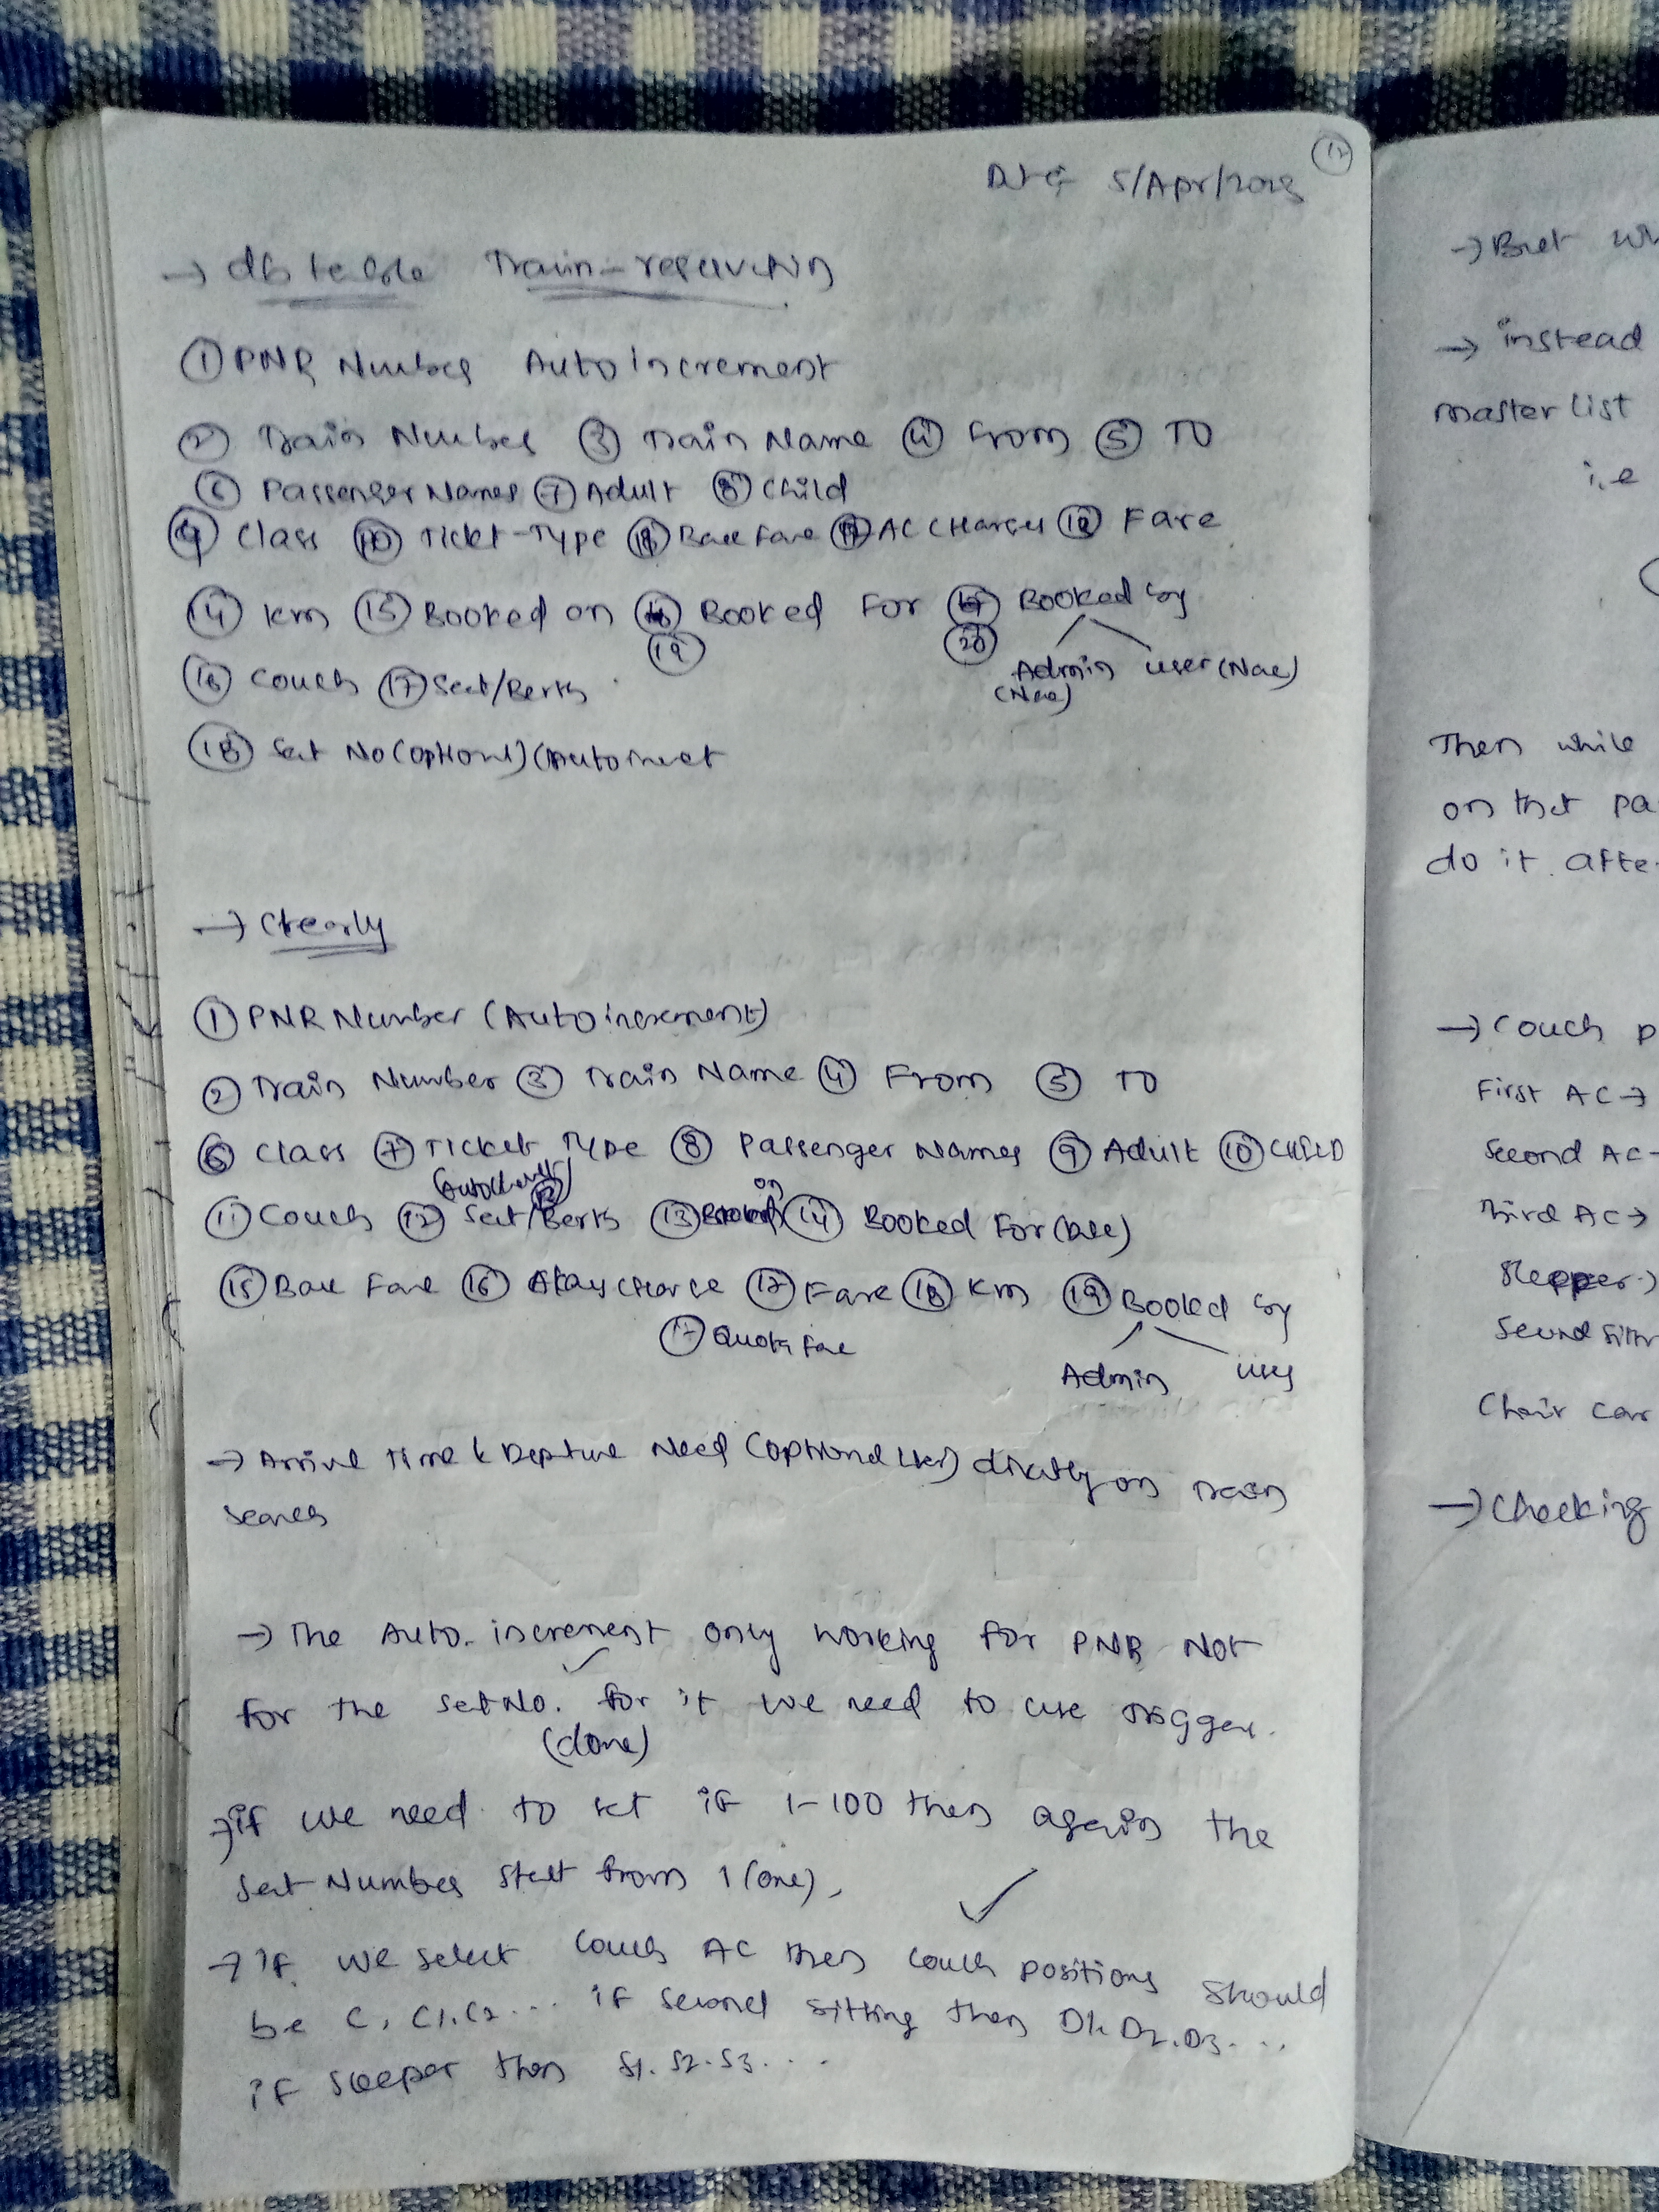 12
5/Apr/2023
→ db table Train-reservation
① PNR Number Auto Increment
② Train Number ③ Train Name ④ From ⑤ TO
⑥ Passenger Names ⑦ Adult ⑧ Child
⑨ Class ⑩ Ticket-Type Base Fare AC Charges Fare
⑭ Km ⑮ Booked on Booked For Booked by
⑲ ⑳ Admin user
⑯ Couch ⑰ Seat/Berth
⑱ Seat No
→ Clearly
① PNR Number (Autoincrement)
② Train Number ③ Train Name ④ From ⑤ TO
⑥ Class ⑦ Ticket Type ⑧ Passenger Names ⑨ Adult ⑩ CHILD
⑪ Couch ⑫ Seat/Berth ⑬ on ⑭ Booked For
⑮ Base Fare ⑯ Charge ⑰ Fare ⑱ Km ⑲ Booked by
⑰ Quota Fare
Admin user
→ Arrival Time & Depture Need directly on Train
search
→ The Auto-increment only working for PNR Not
for the Seat No. for it we need to use Trigger.
(done)
→ if we need to set if 1-100 then again the
Seat Number start from 1 (one),
→ if we select Couch AC then Couch positions should
be C, C1, C2... if second sitting then D1, D2, D3...
if sleeper then S1. S2. S3....
→ But
→ instead
master list
i.e
Then while
on that pa
do it afte
→ Couch p
First AC →
Second AC
Third AC →
Chair car
→ Checking